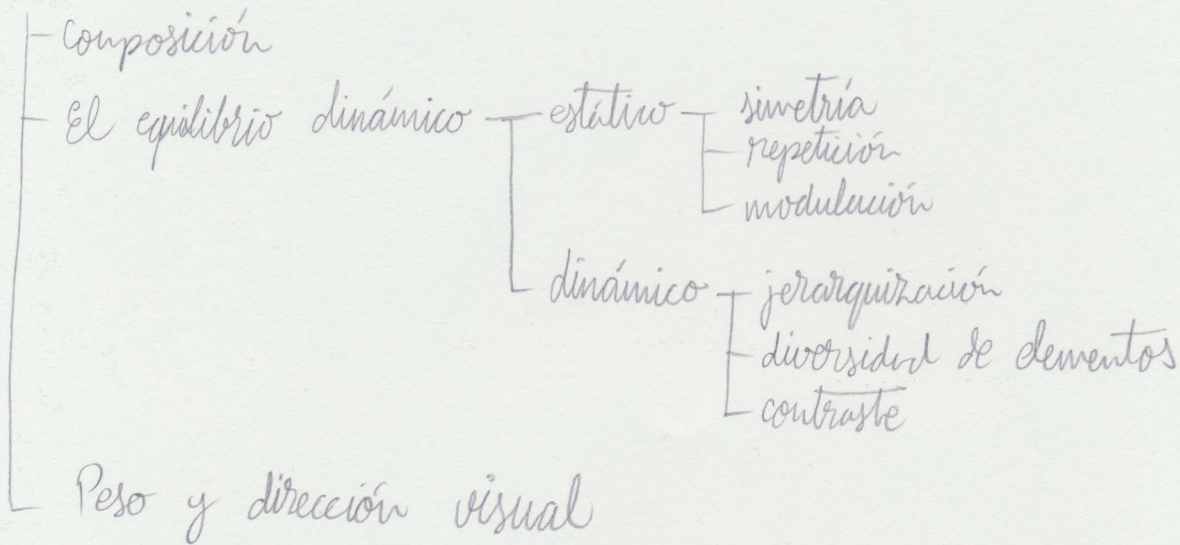 Composición
El equilibrio dinámico estático simetría
repetición
modulación
dinámico jerarquización
diversidad de elementos
contraste
Peso y dirección visual